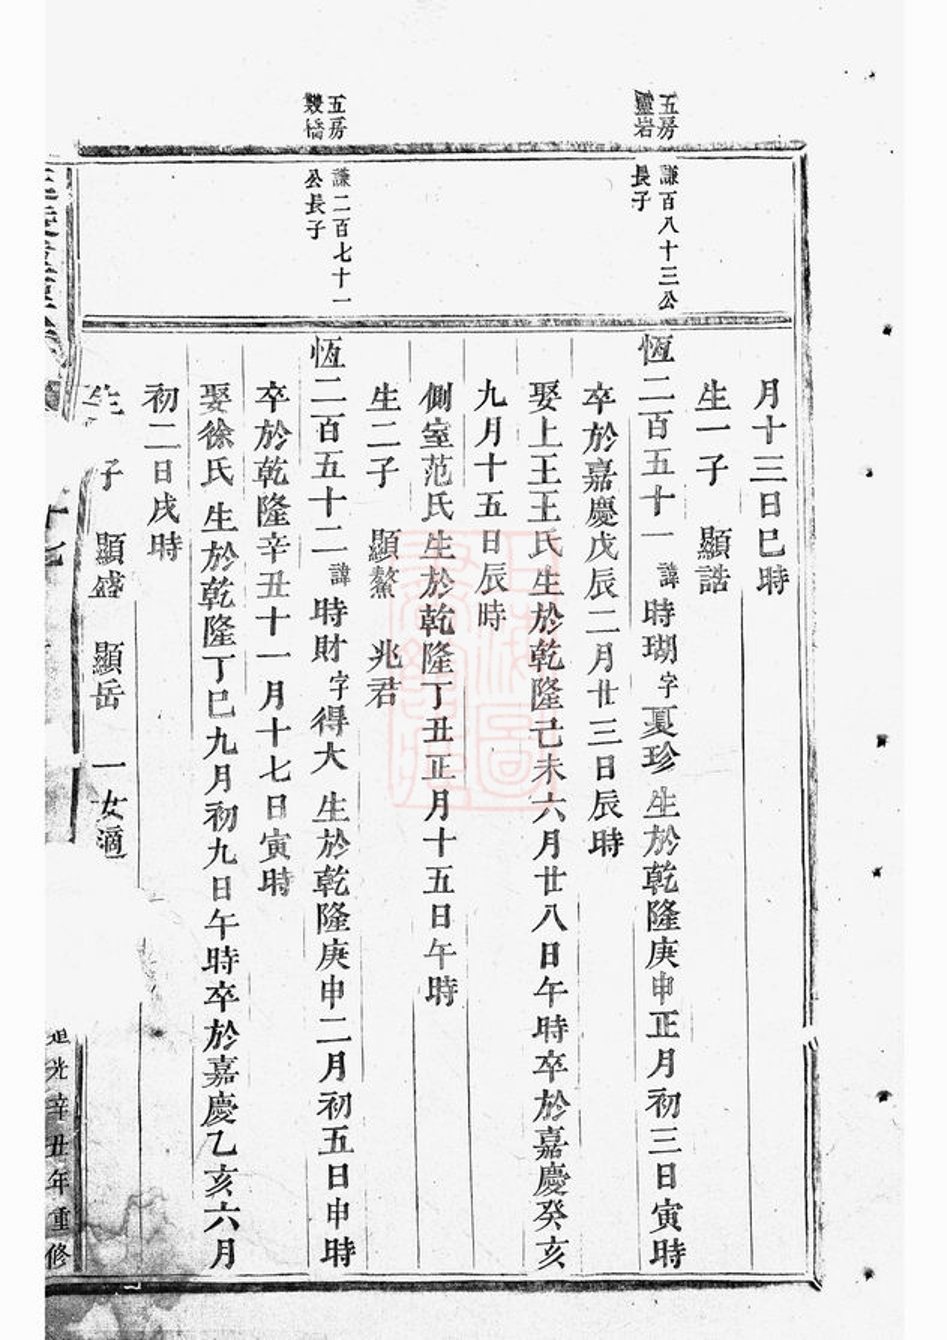 五房
靈岩
謙百八十三公
長子
月十三日巳時
生一子 顯誥
恆二百五十一諱時瑚字夏珍生於乾隆庚申正月初三日寅時
卒於嘉慶戊辰二月廿三日辰時
娶上王王氏生於乾隆己未六月廿八日午時卒於嘉慶癸亥
九月十五日辰時
側室范氏生於乾隆丁丑正月十五日午時
生二子 顯鰲 兆君
五房
雙橋
謙二百七十一
公長子
恆二百五十二諱時財字得大生於乾隆庚申二月初五日申時
卒於乾隆辛丑十一月十七日寅時
娶徐氏生於乾隆丁巳九月初九日午時卒於嘉慶乙亥六月
初二日戌時
生 子 顯盛 顯岳 一女適
十七
光辛丑年重修